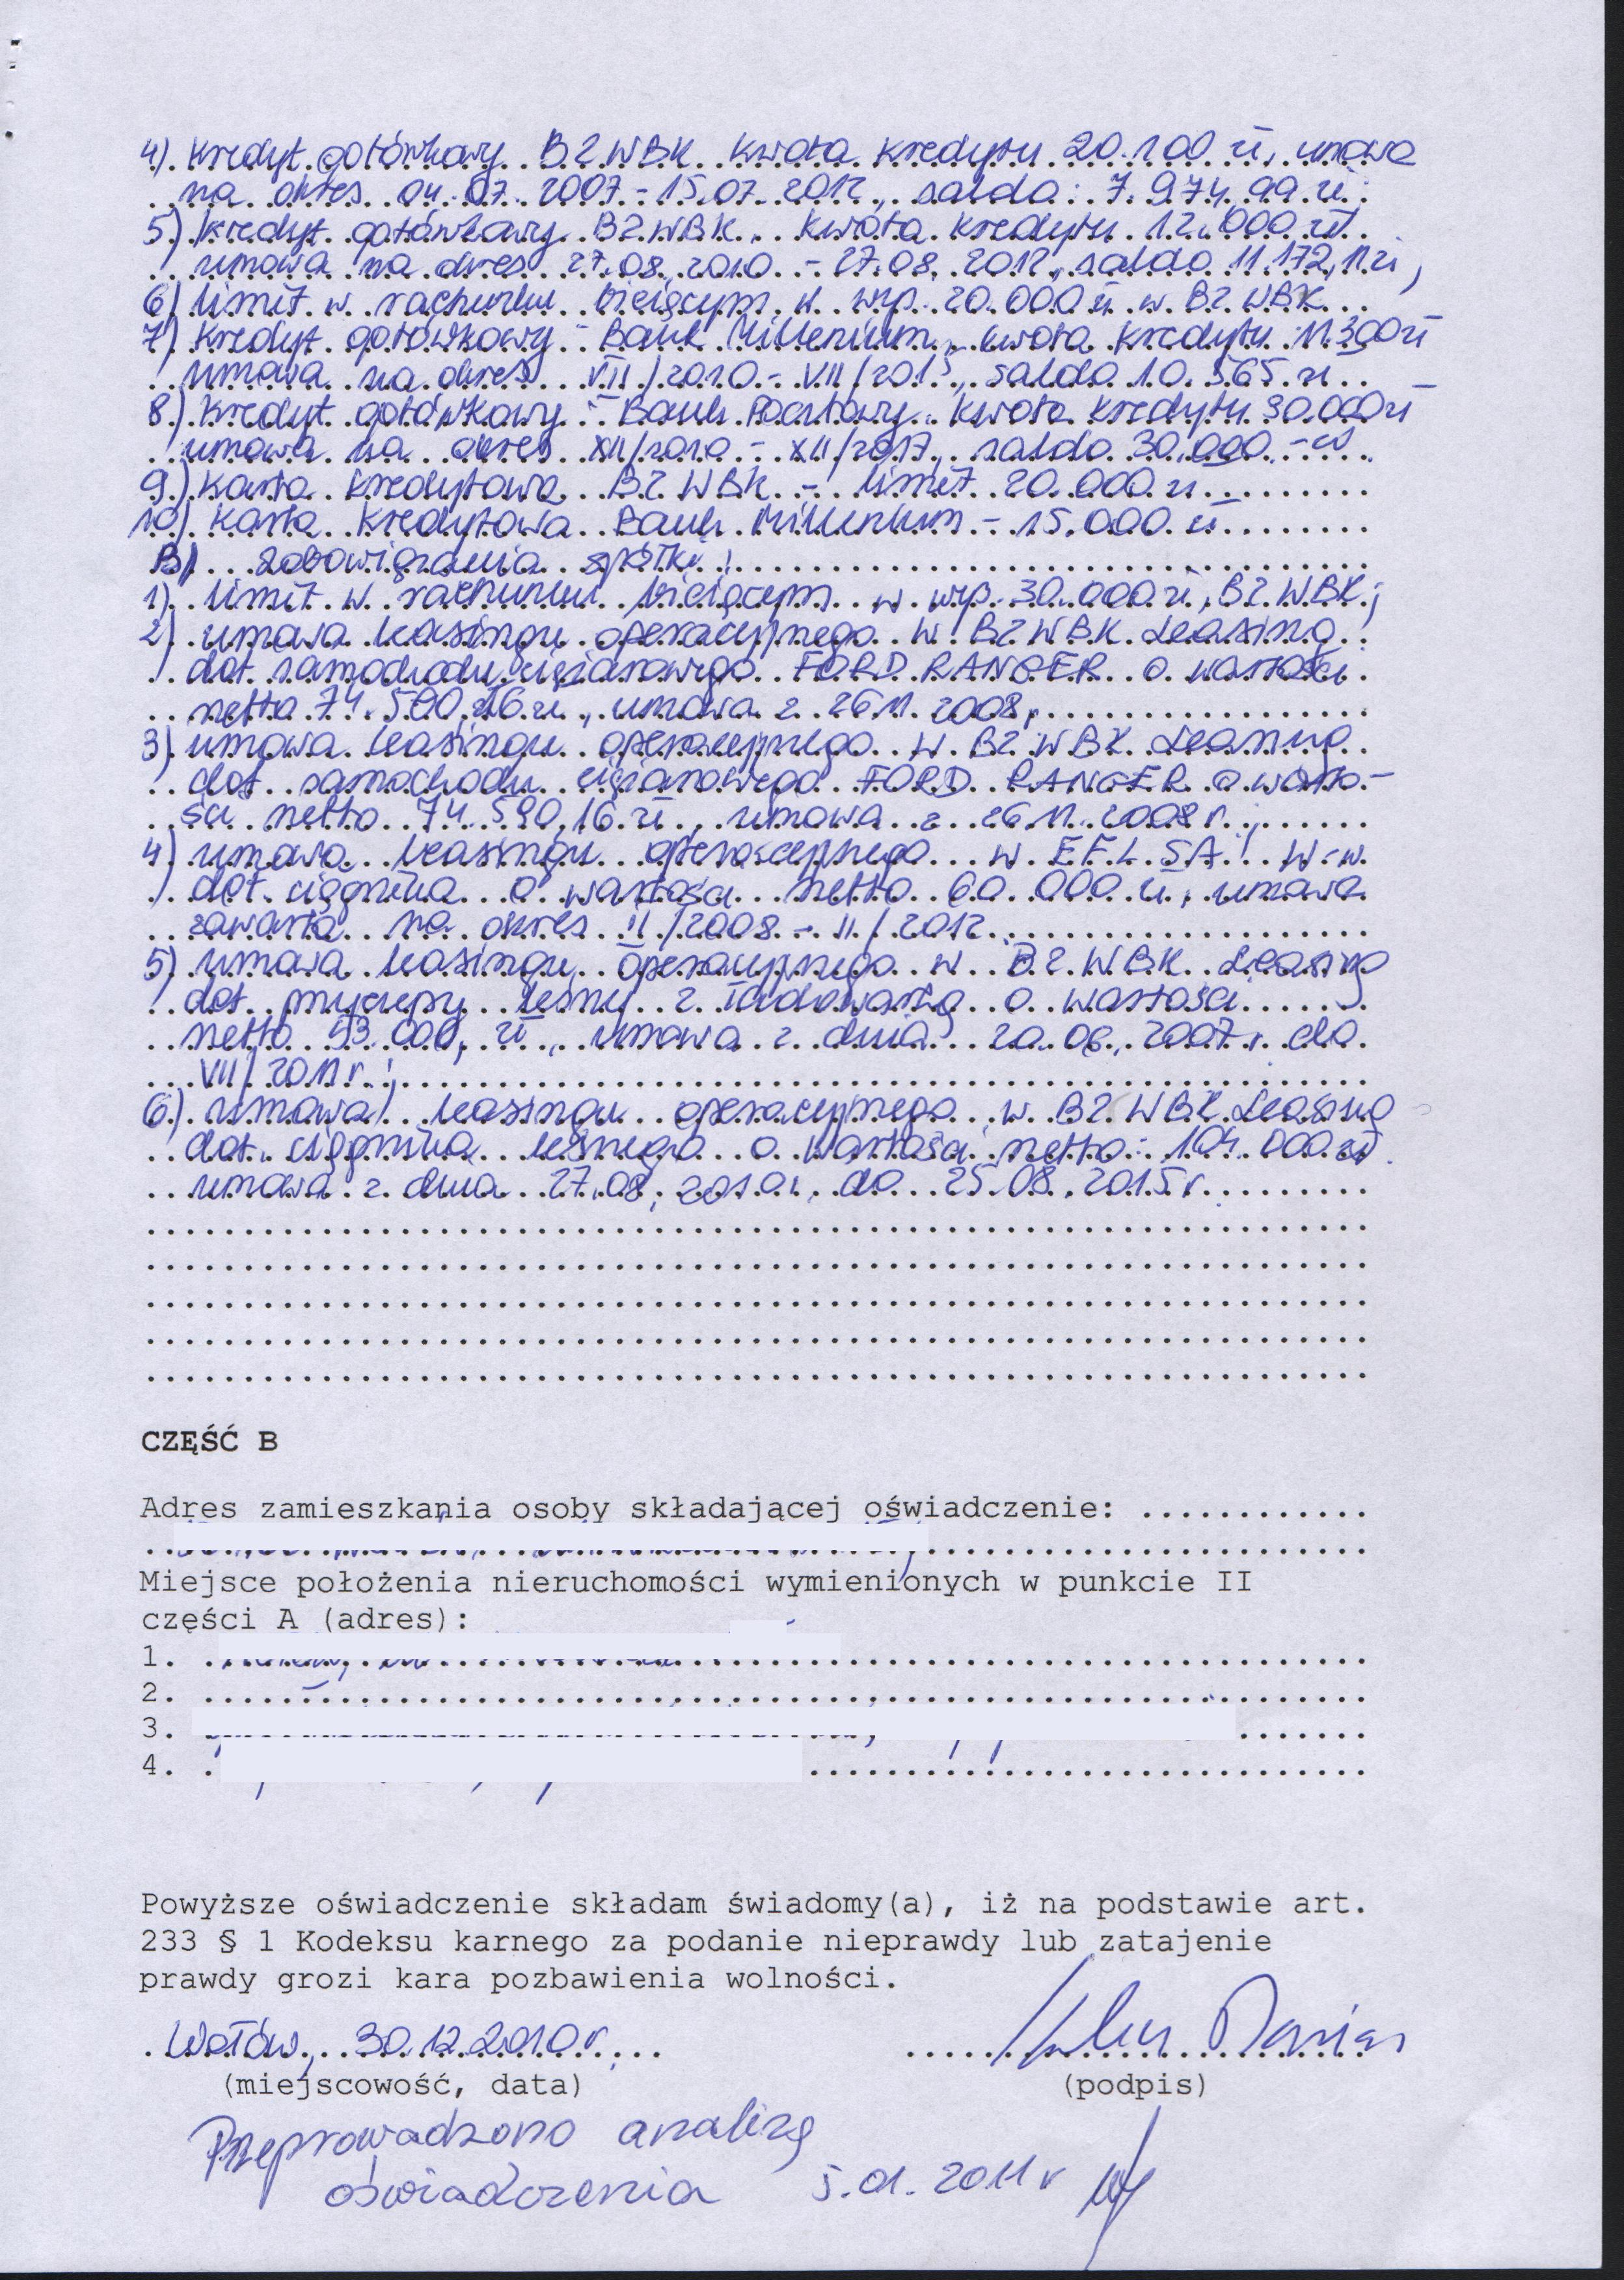 4) kredyt gotówkowy BZ WBK kwota kredytu 20.100 zł, umowa
na okres 04.07.2007 - 15.07.2012, saldo: 7.974,99 zł;
5) kredyt gotówkowy BZ WBK, kwota kredytu 12.000 zł
umowa na okres 27.08.2010 - 27.08.2012, saldo 11.172,11 zł,
6) limit w rachunku bieżącym w wys. 20.000 zł w BZ WBK
7) kredyt gotówkowy - Bank Millenium, kwota kredytu 11.300 zł
umowa na okres VII/2010 - VII/2015, saldo 10.565 zł
8) kredyt gotówkowy - Bank Pocztowy kwota kredytu 30.000 zł
umowa na okres XII/2010 - XII/2017, saldo 30.000.- zł
9) karta kredytowa BZ WBK - limit 20.000 zł
10) karta kredytowa Bank Millenium - 15.000 zł
B) zobowiązania spółki:
1) limit w rachunku bieżącym w wys. 30.000 zł, BZ WBK;
2) umowa leasingu operacyjnego w BZ WBK Leasing
dot. samochodu ciężarowego FORD RANGER o wartości
netto 74.590,16 zł, umowa z 26.11.2008,
3) umowa leasingu operacyjnego w BZ WBK Leasing
dot. samochodu ciężarowego FORD RANGER o warto-
ści netto 74.590,16 zł, umowa z 26.11.2008 r.;
4) umowa leasingu operacyjnego w EFL SA W-w
dot. ciągnika o wartości netto 60.000 zł, umowa
zawarta na okres II/2008 - II/2012
5) umowa leasingu operacyjnego w BZ WBK Leasing
dot. przyczepy leśnej z ładowarką o wartości
netto 53.000, zł, umowa z dnia 20.06.2007 r. do
VII/2011 r.;
6) umowa leasingu operacyjnego w BZ WBK Leasing
dot. ciągnika leśnego o wartości netto: 104.000 zł
umowa z dnia 27.08.2010 r. do 25.08.2015 r.
CZĘŚĆ B
Adres zamieszkania osoby składającej oświadczenie:
Miejsce położenia nieruchomości wymienionych w punkcie II
części A (adres):
1.
2.
3.
4.
Powyższe oświadczenie składam świadomy(a), iż na podstawie art.
233 § 1 Kodeksu karnego za podanie nieprawdy lub zatajenie
prawdy grozi kara pozbawienia wolności.
Wołów, 30.12.2010 r.
(miejscowość, data) (podpis)
Przeprowadzono analizę
oświadczenia 5.01.2011 r